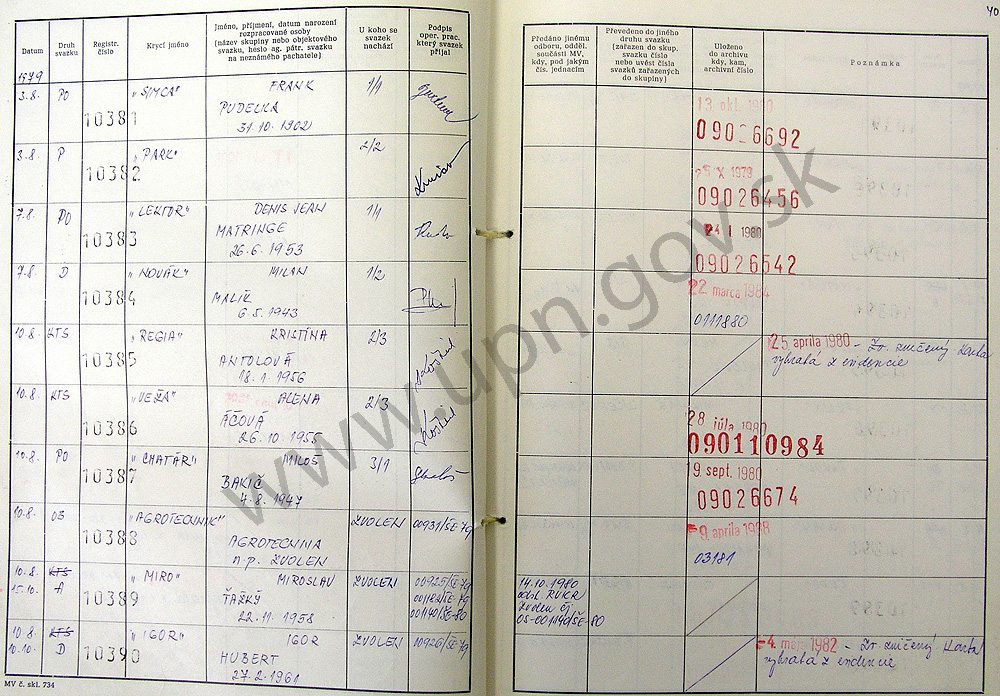 40
Datum
Druh svazku
Registr. číslo
Krycí jméno
Jméno, příjmení, datum narození rozpracované osoby (název skupiny nebo objektového svazku, heslo ag. pátr. svazku na neznámého pachatele)
U koho se svazek nachází
Podpis oper. prac. který svazek přijal
Předáno jinému odboru, odděl. součásti MV, kdy, pod jakým čís. jednacím
Převedeno do jiného druhu svazku (zařazen do skup. svazku číslo nebo uvést čísla svazků zařazených do skupiny)
Uloženo do archívu kdy, kam, archivní číslo
Poznámka
1979
3.8. PO 10381 "SIMCA" FRANK 1/1
PUDELKA
31.10.1902
13. okt. 1980
09026692
3.8. P 10382 "PARK" 2/2
25 X 1979
09026456
7.8. PO 10383 "LEKTOR" DENIS JEAN 1/1
MATRINGE
26.6.1953
24 I 1980
09026542
7.8. D 10384 "NOVÁK" MILAN 1/2
MALÍK
6.5.1943
22 marca 1984
0111880
10.8. KTS 10385 "REGIA" KRISTÍNA 2/3
ANTOLOVÁ
18.1.1956
25 apríla 1980 - Zv. zničený Karta
vybratá z evidencie
10.8. KTS 10386 "VEŽA" ALENA 2/3
ÁČOVÁ
26.10.1955
28 júla 1980
090110984
10.8. PO 10387 "CHATÁR" MILOŠ 3/1
BAKIČ
4.8.1947
19 sept. 1980
09026674
10.8. OB 10388 "AGROTECHNIK" ZVOLEN 00931/ŠE-79
AGROTECHNA
n.p. ZVOLEN
9 apríla 1988
03181
10.8. KTS 10389 "MIRO" MIROSLAV ZVOLEN 00925/ŠE-79
15.10. A ŤAŽKÝ 001182/ŠE-79
22.11.1958 001140/ŠE-80
14.10.1980
odsl. RVKR
Zvolen čj.
05-001140/ŠE-80
10.8. KTS 10390 "IGOR" IGOR ZVOLEN 00926/ŠE-79
10.10. D HUBERT
27.2.1961
4 mája 1982 - Zv. zničený Karta
vybratá z evidencie
MV č. skl. 734
www.upn.gov.sk